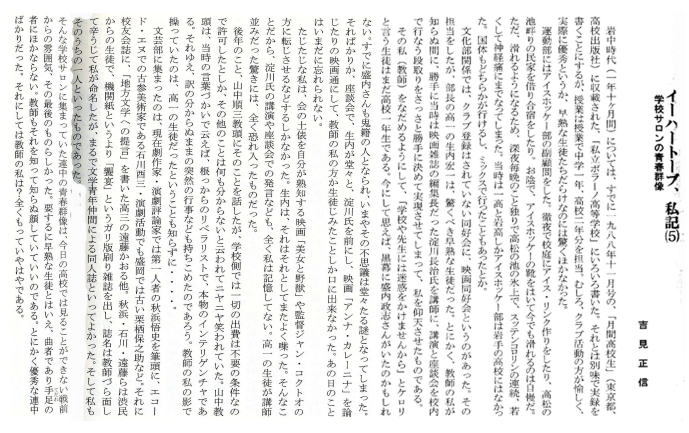 イーハトーブ、私記(5)
学校サロンの青春群像
吉見正信
岩中時代(一年十ヶ月間)については、すでに一九八八年十一月号の、「月間高校生」(東京都、
高校出版社)に収載された、「私立ポラーノ高等学校」にいろいろ書いた。それとは別味で実録を
書くことにするが、授業は授業で中学一年、高校二年分を担当、むしろ、クラブ活動の方が愉しく、
実際に優秀というか、早熟な生徒たちだらけなのには驚くほかなかった。
運動部にはアイスホッケー部の副顧問をした。徹夜で校庭にアイス・リンク作りをしたり、高松の
池畔りの民家を借り合宿をしたり。お陰で、アイスホッケーの靴をはいて今でも滑れるのは自慢だ。
ただ、滑れるようになるため、深夜毎晩のこと独りで高松の池の氷上で、スッテンコロリンの連続、若
くして神経痛にまでなってしまった。当時は一高と岩高しかアイスホッケー部は岩手の高校にはなかっ
た。国体もどちらかが行けるし、ミックスで行ったこともあったとか。
文化部関係では、クラブ登録はされていない同好会に、映画同好会というのがあった。その
担当をしたが、部長の高一の生内宏一は、驚くべき早熟な生徒だった。とにかく、教師の私が
知らぬ間に、勝手に当時は映画雑誌の編集長だった淀川長治氏を講師に、講演と座談会を校内
で行なう段取りをさっさと勝手に決めて実現させてしまって、私を仰天させたものである。
その私(教師)をなだめるようにして、「学校や先生には迷惑をかけませんから」とケロリ
と言う生徒はまだ高校一年生である。今にして思えば、黒幕に盛内政志さんがいたのかもしれ
ない。すでに盛内さんも鬼籍の人となられ、いまやその不思議は堂々たる謎となってしまった。
そればかりか、座談会で、生内が堂々と、淀川氏を前にし、映画「アンナ・カレーニナ」を論
じたりの映画通にして、教師の私の方が生徒じみたことしか口に出来なかった。あの日のこと
はいまだに忘れられない。
たじたじな私は、会の土俵を自分が熟知する映画「美女と野獣」や監督ジャン・コクトオの
方に転じさせるなどするしかなかった。生内は、それはそれとしてまたよく喋った。そんなこ
とだから、淀川氏の講演や座談会での発言なども、全く私は記憶してない。高一の生徒が講師
並みだった驚きには、全く恐れ入ったものだった。
後年のこと、山中順三教頭にそのことを話したが、学校側では一切の出費は不要の条件なの
で許可したとしか、その他のことは何も分からないと云われてニヤニヤ笑われていた。山中教
頭は、当時の言葉づかいで云えば、根っからのリベラリストで、本物のインテリゲンチャであ
る。それゆえ、訳の分からぬままの突然の行事なども持ちこめたのであろう。教師の私の影で
操っていたのは、高一の生徒だったということも知らずに・・・・。
文芸部に集まったのは、現在劇作家・演劇評論家では第一人者の秋浜悟史を筆頭に、エコー
ド・エヌでの古参美術家である石川酉三・演劇活動でも盛岡では古い栗栖保之助など。それに
校友会誌に、「地方文学への提言」を書いた高三の遠藤かおる他。秋浜・石川・遠藤らは渋民
からの生徒で、機関紙というより「饗宴」というガリ版刷り雑誌を出し、誌名は教師づら面し
て辛うじて私が命名したが、まるで文学青年仲間による同人誌といってよかった。そして私も
そのうちの一人といったものであった。
そんな学校サロンに集まっていた連中の青春群像は、今日の高校では見ることができない戦前
からの雰囲気、その最後のものらしかった。要するに早熟な生徒とはいえ、曲者であり手足の
者にほかならない。教師もそれを知って知らぬ顔していていいのである。とにかく優秀な連中
ばかりだった。それにしては教師の私は？全くもっていやはやである。